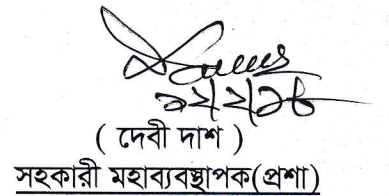 ১২/২/১৮
( দেবী দাশ )
সহকারী মহাব্যবস্থাপক(প্রশা)